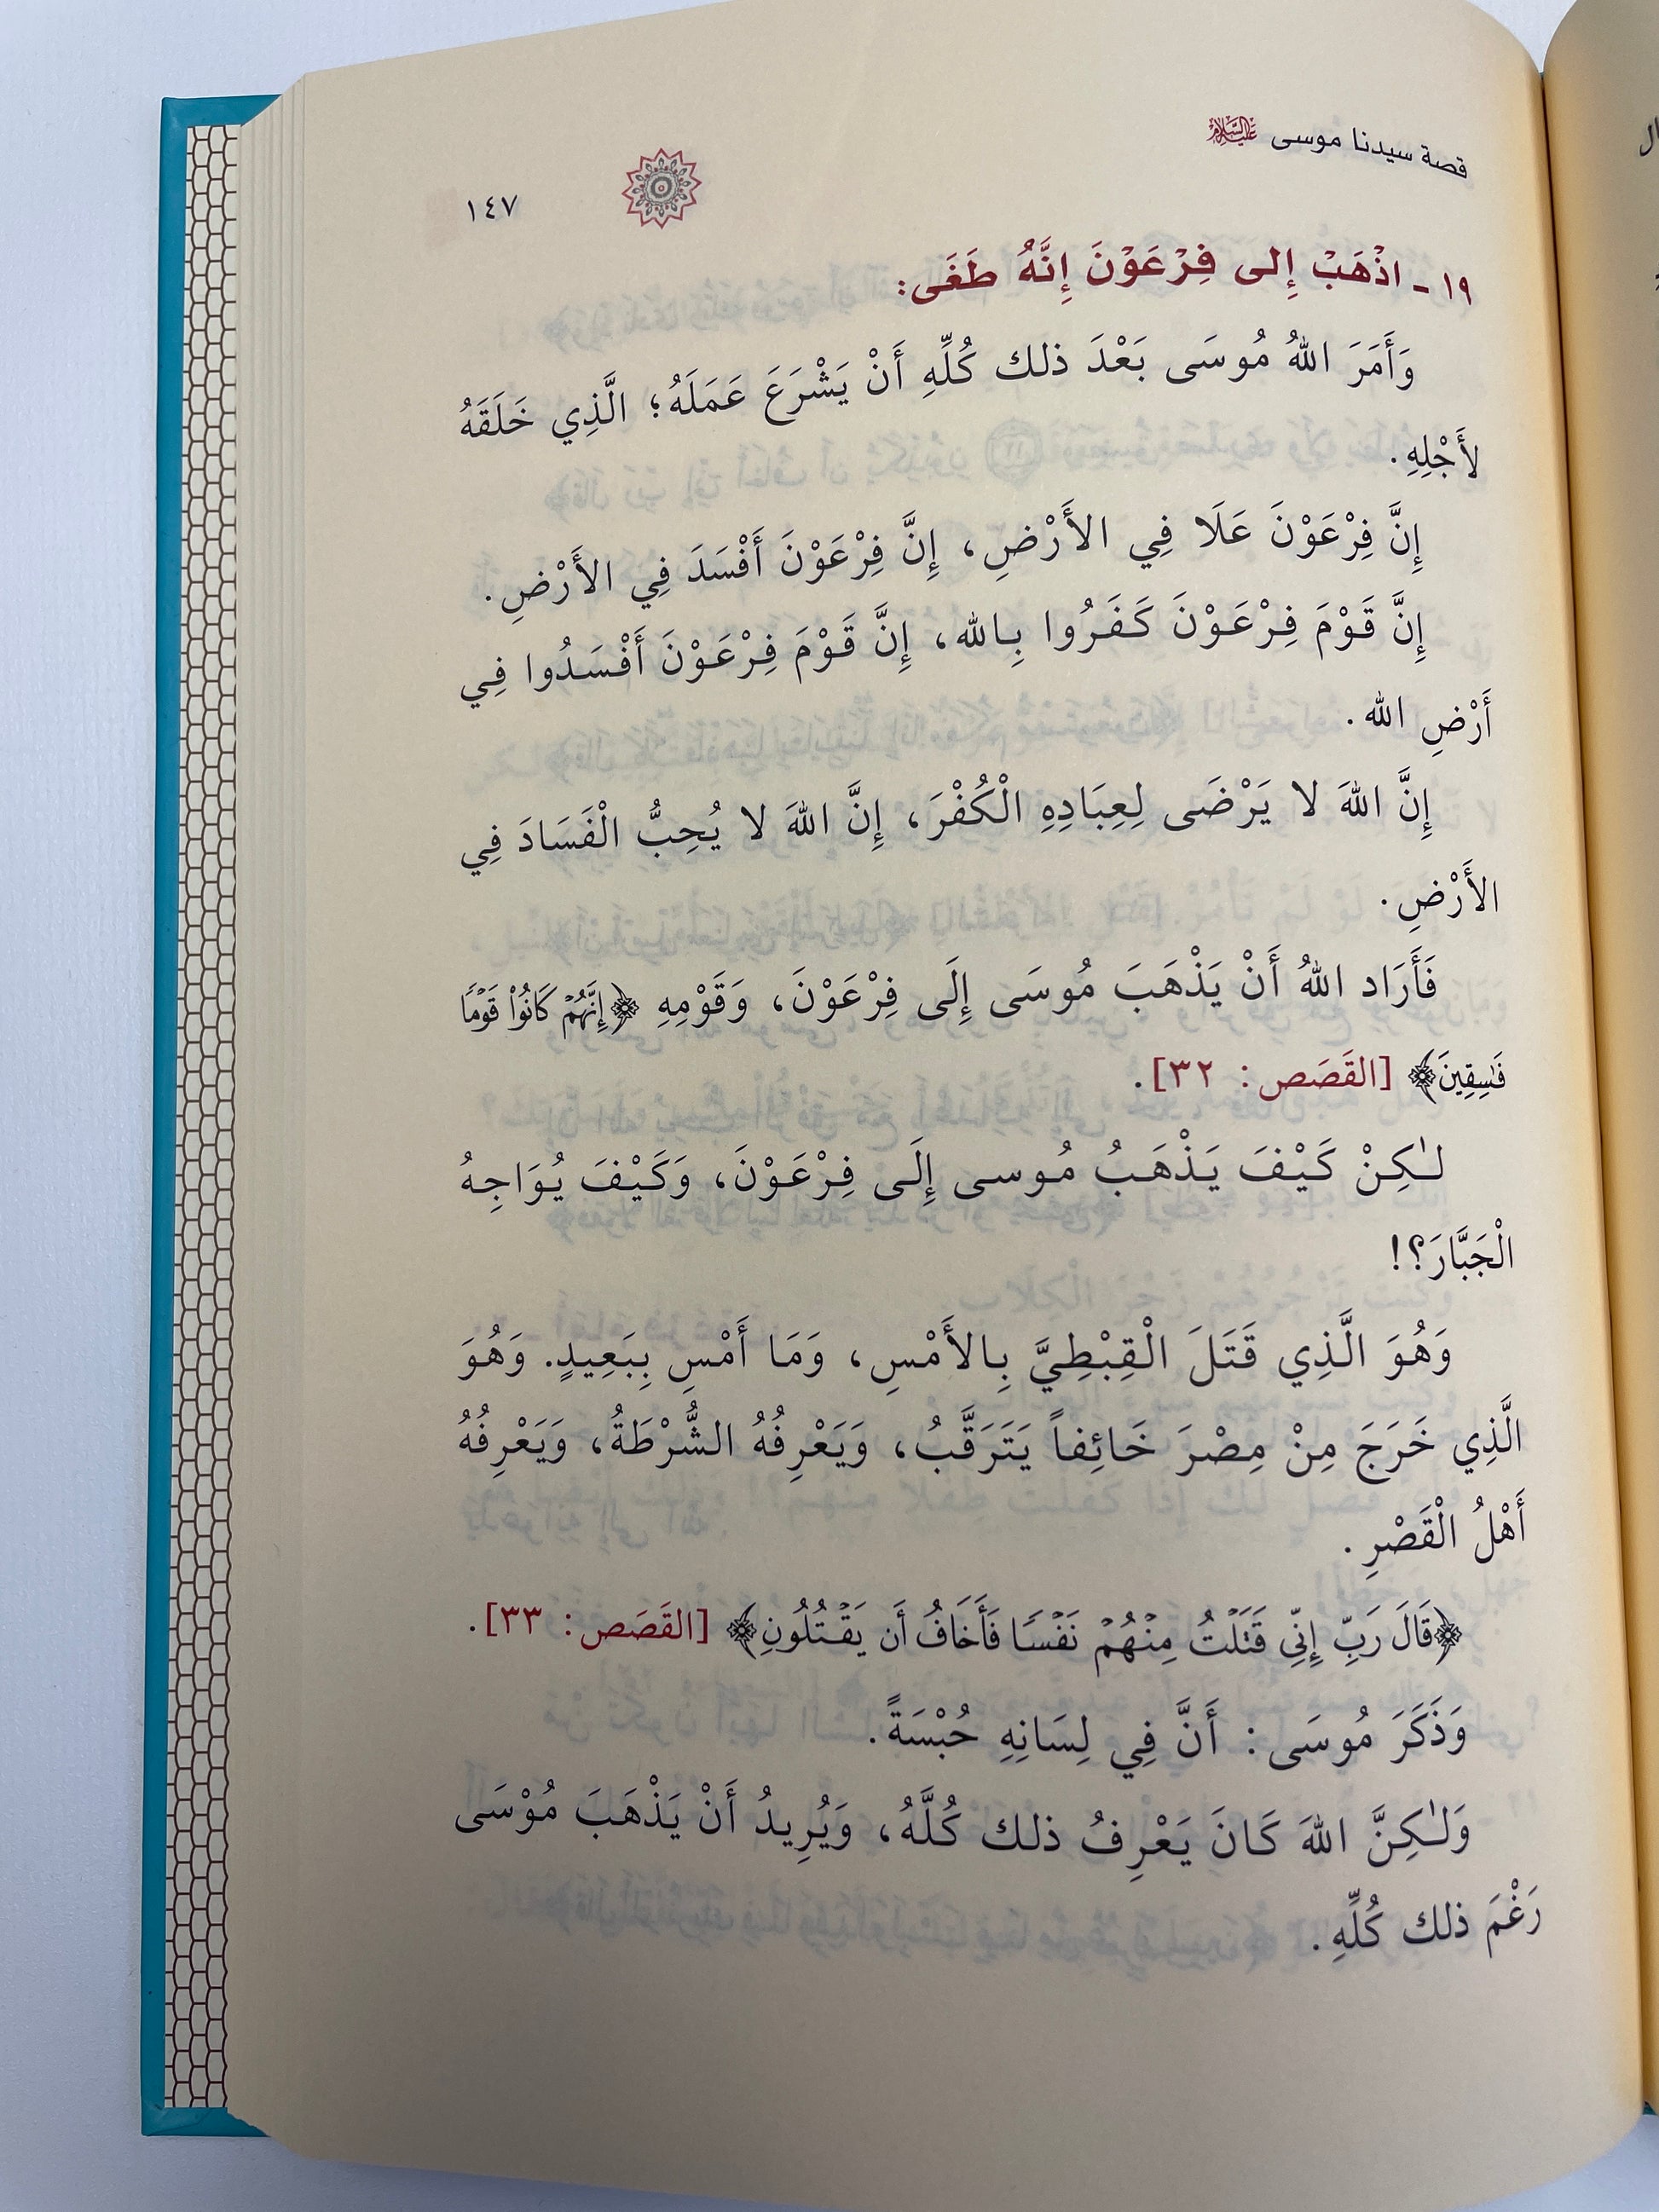 قصة سيدنا موسى عليه السلام
١٤٧
١٩ - اذْهَبْ إِلى فِرْعَوْنَ إِنَّهُ طَغَى:
وَأَمَرَ اللهُ مُوسَى بَعْدَ ذلك كُلِّهِ أَنْ يَشْرَعَ عَمَلَهُ؛ الَّذِي خَلَقَهُ
لأَجْلِهِ.
إِنَّ فِرْعَوْنَ عَلَا فِي الأَرْضِ، إِنَّ فِرْعَوْنَ أَفْسَدَ فِي الأَرْضِ.
إِنَّ قَوْمَ فِرْعَوْنَ كَفَرُوا بِالله، إِنَّ قَوْمَ فِرْعَوْنَ أَفْسَدُوا فِي
أَرْضِ الله.
إِنَّ اللهَ لا يَرْضَى لِعِبَادِهِ الْكُفْرَ، إِنَّ اللهَ لا يُحِبُّ الْفَسَادَ فِي
الأَرْضِ.
فَأَرَاد اللهُ أَنْ يَذْهَبَ مُوسَى إِلَى فِرْعَوْنَ، وَقَوْمِهِ ﴿إِنَّهُمْ كَانُوا۟ قَوْمًا
فَـٰسِقِينَ﴾ [القَصَص: ٣٢].
لـٰكِنْ كَيْفَ يَذْهَبُ مُوسى إِلَى فِرْعَوْنَ، وَكَيْفَ يُوَاجِهُ
الْجَبَّارَ؟!
وَهُوَ الَّذِي قَتَلَ الْقِبْطِيَّ بِالأَمْسِ، وَمَا أَمْسِ بِبَعِيدٍ. وَهُوَ
الَّذِي خَرَجَ مِنْ مِصْرَ خَائِفاً يَتَرَقَّبُ، وَيَعْرِفُهُ الشُّرْطَةُ، وَيَعْرِفُهُ
أَهْلُ الْقَصْرِ.
﴿قَالَ رَبِّ إِنِّي قَتَلْتُ مِنْهُمْ نَفْسًا فَأَخَافُ أَن يَقْتُلُونِ﴾ [القَصَص: ٣٣].
وَذَكَرَ مُوسَى: أَنَّ فِي لِسَانِهِ حُبْسَةً.
وَلـٰكِنَّ اللهَ كَانَ يَعْرِفُ ذلك كُلَّهُ، وَيُرِيدُ أَنْ يَذْهَبَ مُوْسَى
رَغْمَ ذلك كُلِّهِ.